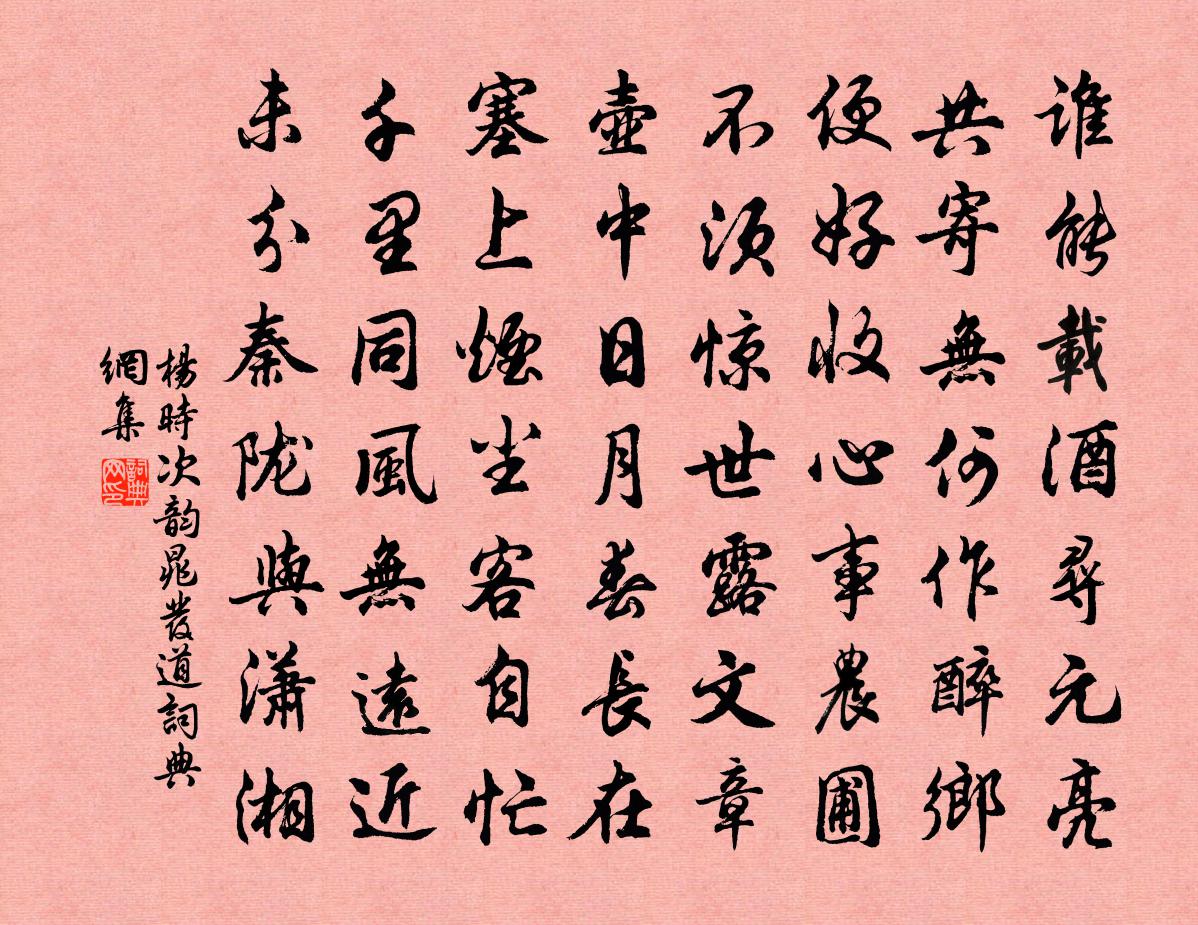 谁能載酒尋元亮
共寄無何作醉鄉
便好收心事農圃
不须惊世露文章
壺中日月春長在
塞上煙尘客自忙
千里同風無遠近
未分秦陇與潇湘
楊時次韵晁發道詞典
網集
詞典